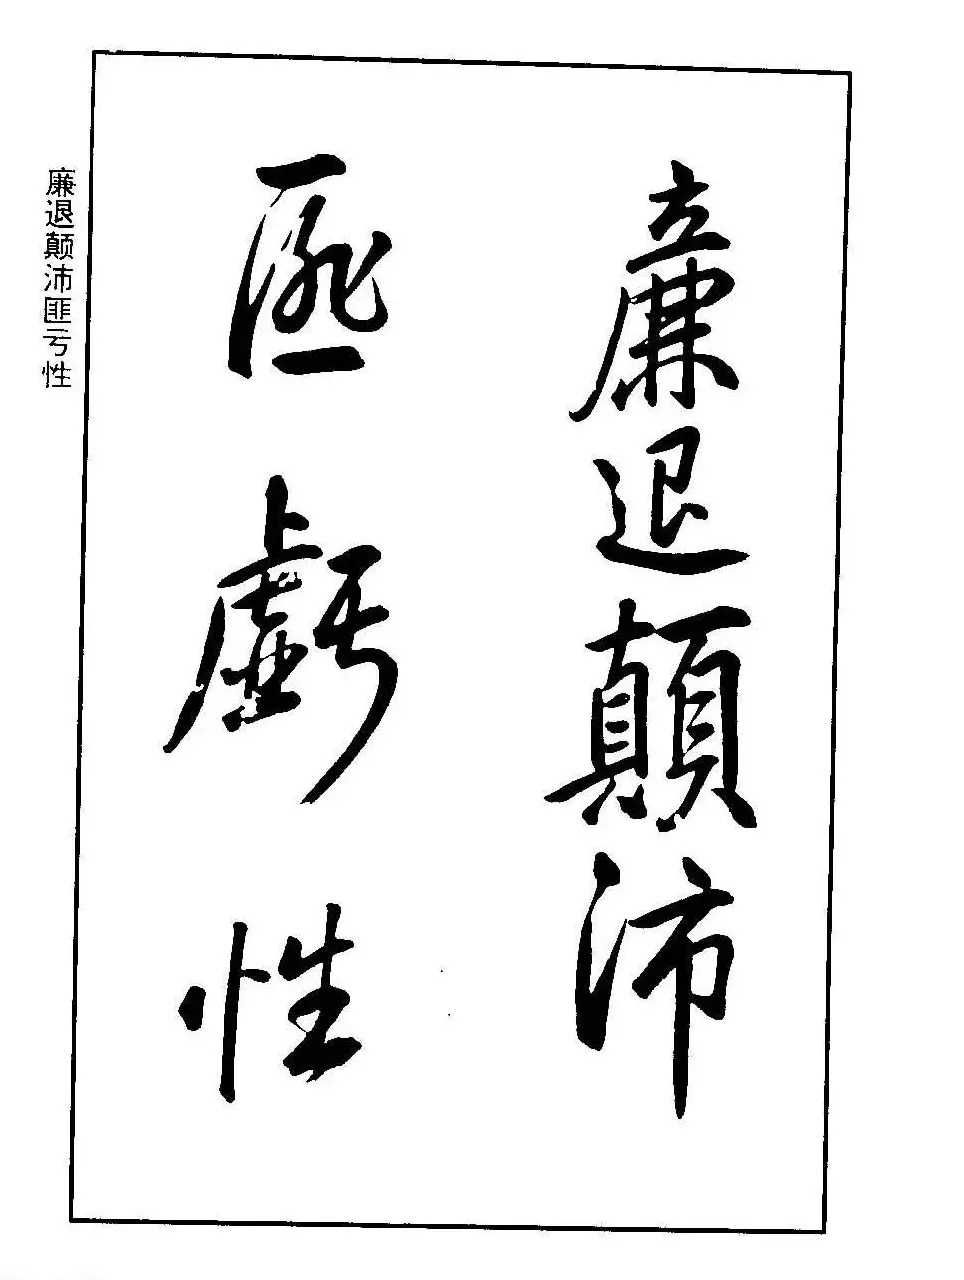 廉退顛沛
匪虧性
廉退颠沛匪亏性